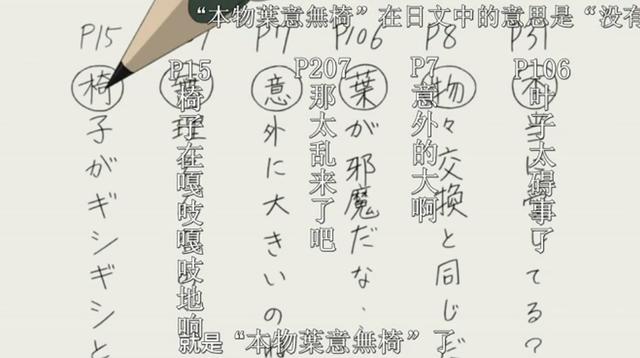 “本物葉意無椅”在日文中的意思是“没有
P31
てる？
P8
物々交換と同じだ
P106
葉が邪魔だな
P7
意外に大きいの
P15
椅子がギシギシと
P106
叶子太碍事了
P7
意外的大啊
P207
那太乱来了吧
P15
椅子在嘎吱嘎吱地响
就是“本物葉意無椅”了